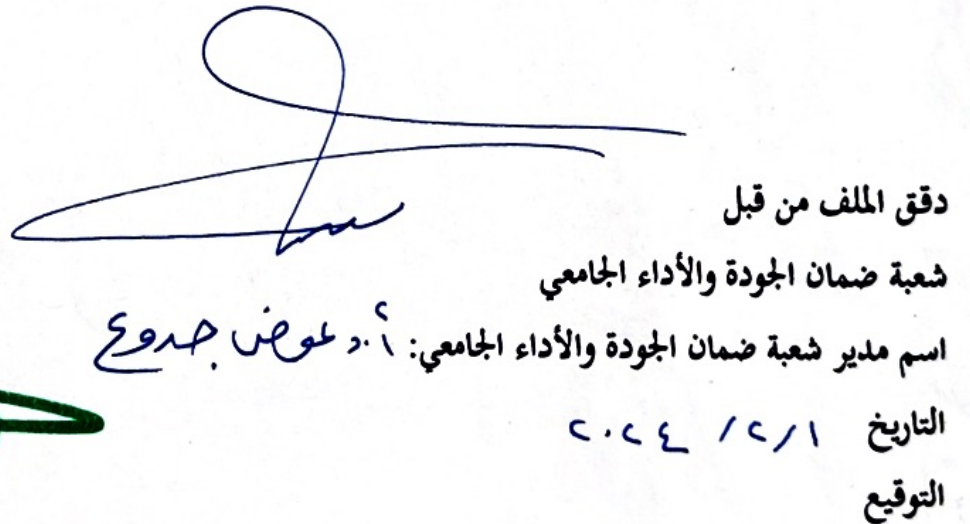 دقق الملف من قبل
شعبة ضمان الجودة والأداء الجامعي
اسم مدير شعبة ضمان الجودة والأداء الجامعي: أ.د عوض جدوع
التاريخ ١ / ٢ / ٢٠٢٤
التوقيع